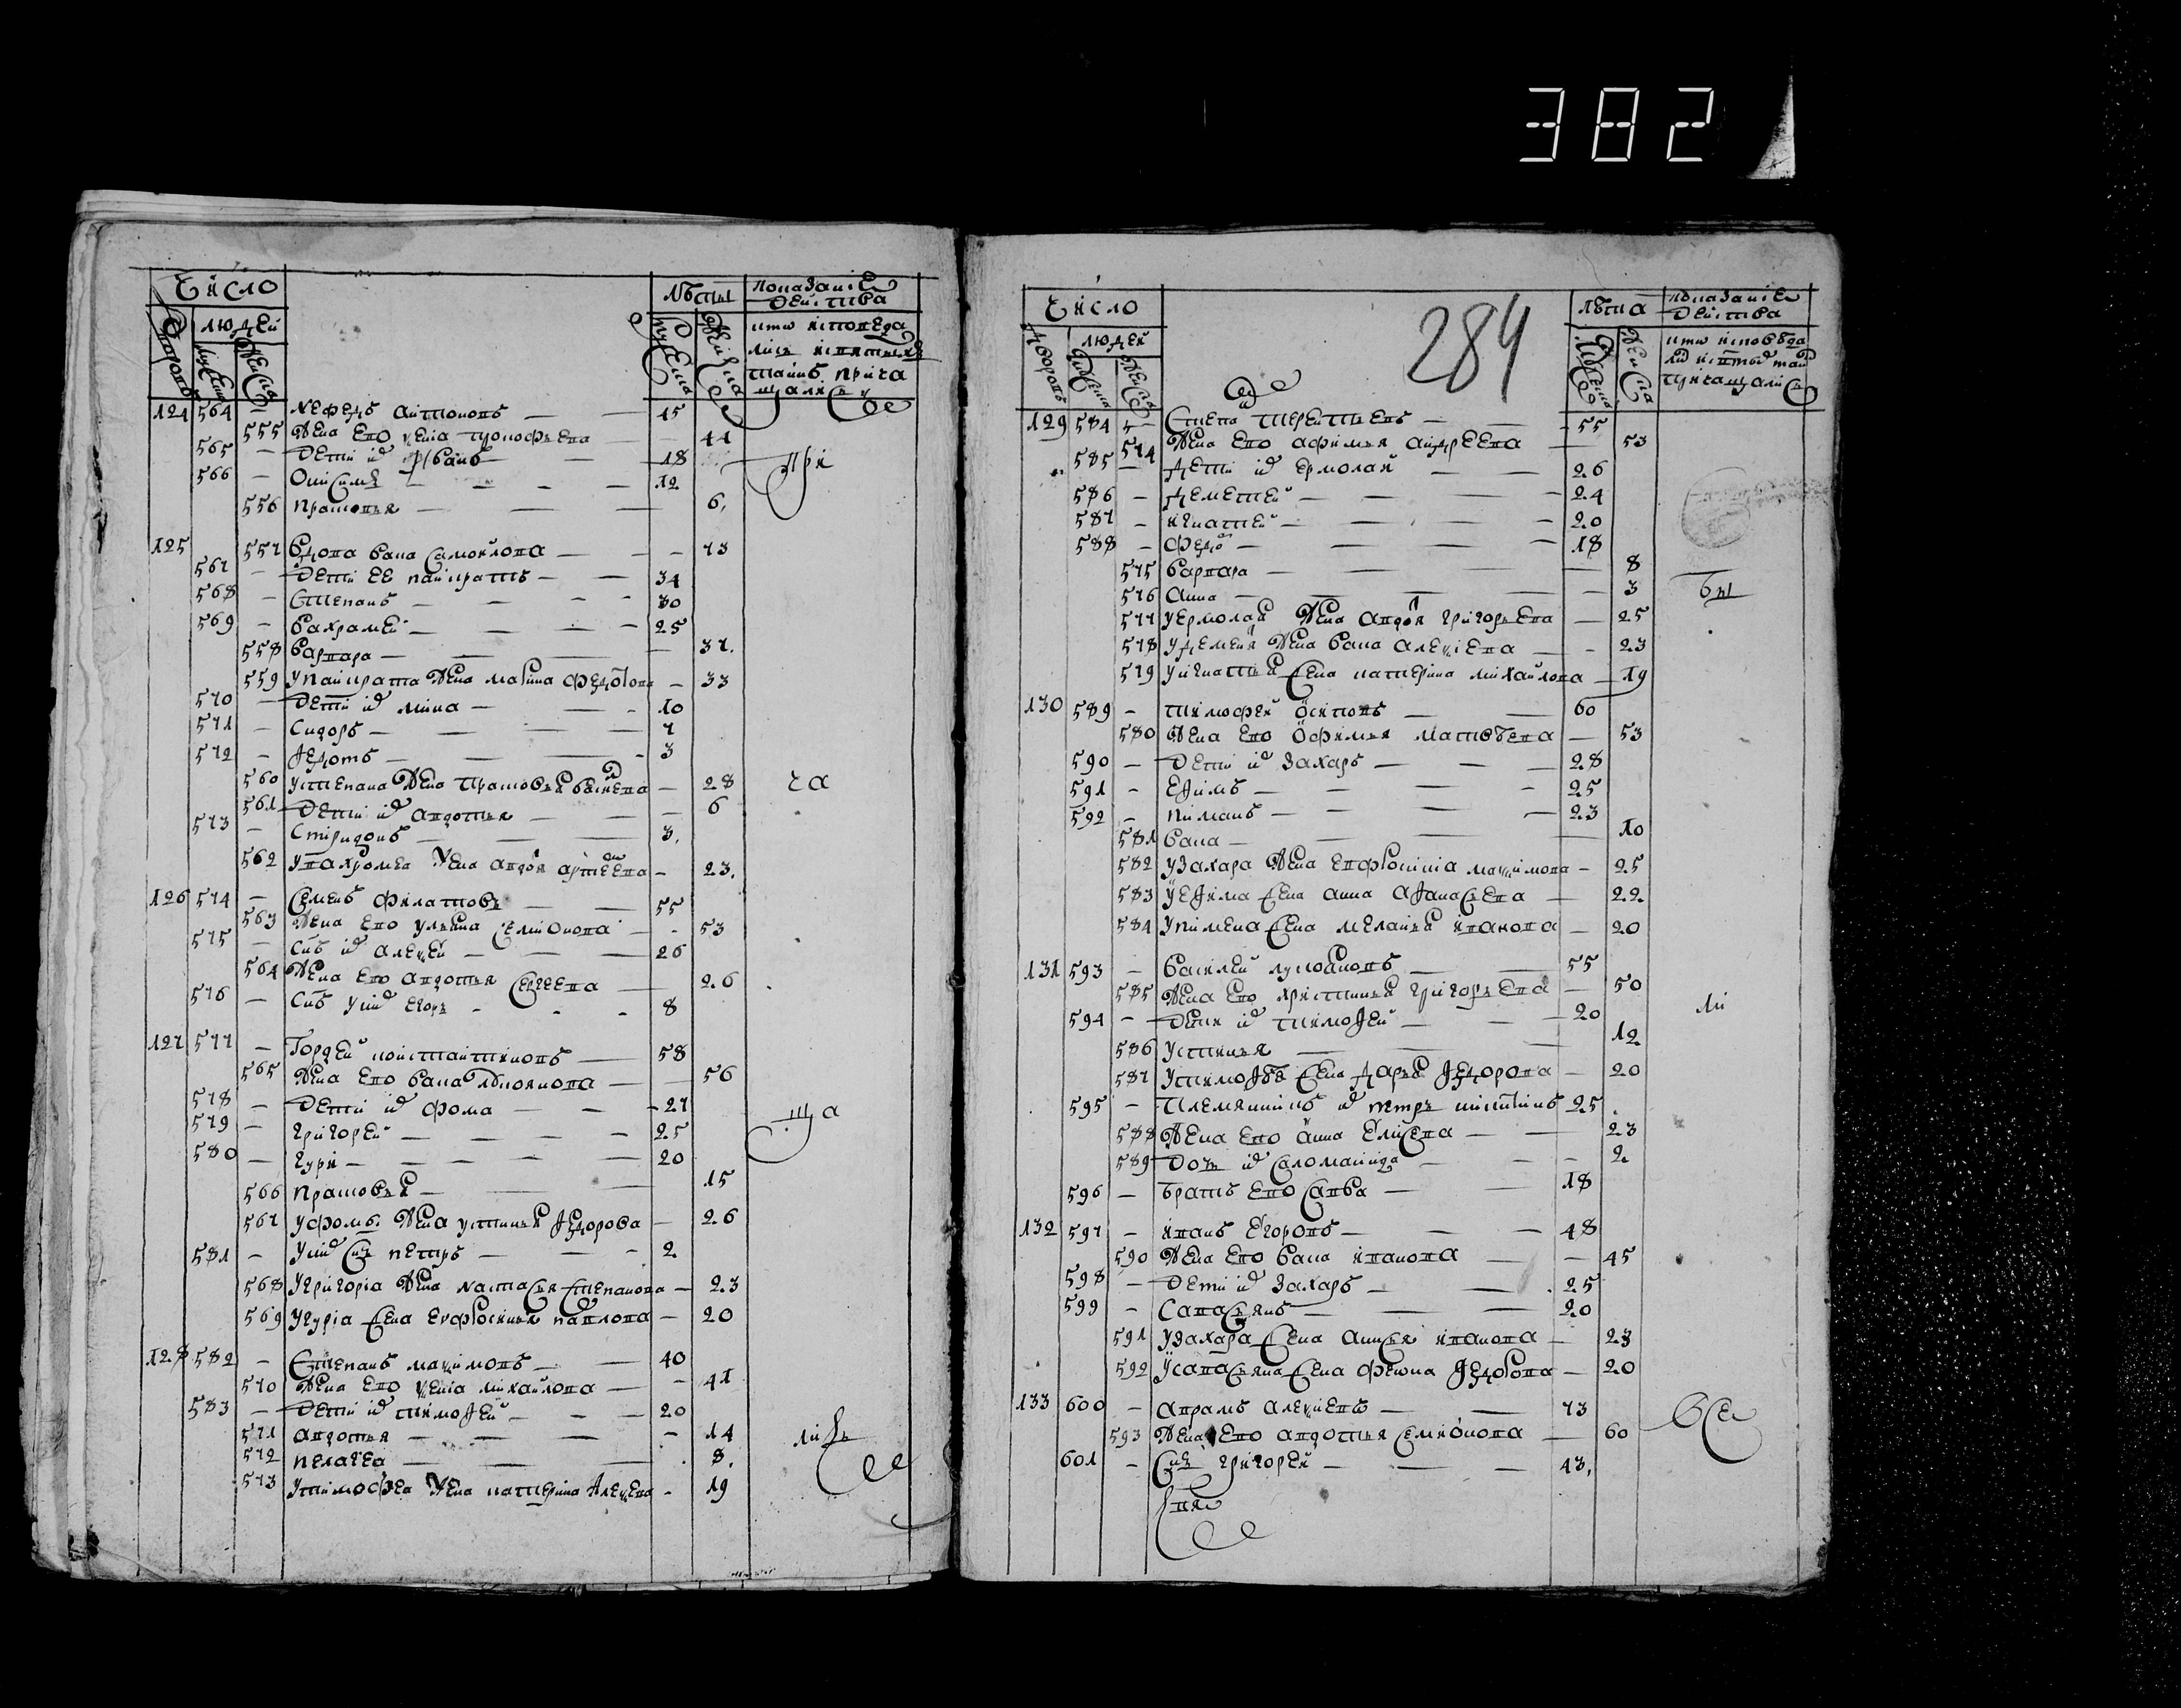 382
Число
лѣты
показаніе
действа
дворовъ
людей
мужеска
женска
мужеска
женска
кто исповеда
лись и святыхъ
таинъ прича
щались
124 564 – Нефедъ антоновъ — 15
555 жена ево ксенія прокофьева — 44
565 – дети ихъ — 18
566 – Онисимъ — 12
556 прасковья — 6
при
125 557 вдова васа самойлова — 73
567 – дети ее панкратъ — 34
568 – Степанъ — 30
569 – вахрамей — 25
558 варвара — 37
559 у панкрата жена марина федотова — 33
570 – дети ихъ мина — 10
571 – Сидоръ — 7
572 – федотъ — 3
560 у степана жена прасковья васильева — 28
ча
561 дети ихъ авдотья — 6
573 – Спиридонъ — 3
562 у вахромея жена авдотья артеева — 23
126 574 – Семенъ филатовъ — 55
563 жена ево ульяна селионова — 53
575 – Сынъ ихъ алексей — 26
564 жена ево авдотья Сергеева — 26
576 – Сынъ у нихъ егоръ — 8
127 577 – Гордей константиновъ — 58
565 жена ево васа — 56
578 – дети ихъ фома — 27
ща
579 – григорей — 25
580 – гури — 20
566 прасковья — 15
567 у фомы жена устинья федорова — 26
581 – у нихъ сынъ петръ — 2
568 у григорія жена настасья степанова — 23
569 у гурія жена ефросинья павлова — 20
128 582 – Степанъ максимовъ — 40
570 жена ево ксенія михайлова — 41
583 – дети ихъ тимофей — 20
571 авдотья — 14
лись
572 пелагея — 8
573 у тимофея жена катерина алексева — 19
Число
284
лѣта
показаніе
действа
дворовъ
людей
мужеска
женска
мужеска
женска
кто исповѣда
лись и святыхъ таинъ
причащались
129 584 – Степанъ терентьевъ — 55
574 жена ево афимья андреева — 53
585 – дети ихъ ермолай — 26
586 – дементей — 24
587 – игнатей — 20
588 – федоръ — 18
575 варвара — 8
576 анна — 3
бы
577 у ермолая жена авдотья григорьева — 25
578 у дементея жена васа алексеева — 23
579 у игнатья жена катерина михайлова — 19
130 589 – тимофей осиповъ — 60
580 жена ево офимья матвѣева — 53
590 – дети ихъ захаръ — 28
591 – ефимъ — 25
592 – пиманъ — 23
581 васа — 10
582 у захара жена евфросинія максимова — 25
583 у ефима жена анна афанасьева — 22
584 у пимена жена меланья иванова — 20
131 593 – василей лукояновъ — 55
585 жена ево христинья григорьева — 50
ли
594 – дети ихъ тимофей — 20
586 устинья — 12
587 у тимофѣя жена дарья федорова — 20
595 – племянникъ ихъ петръ никитинъ 25
588 жена ево анна елисева — 23
589 дочь ихъ саломанида — 2
596 – братъ ево савва — 18
132 597 – иванъ егоровъ — 48
590 жена ево васа иванова — 45
598 – дети ихъ захаръ — 25
599 – савасьянъ — 20
591 у захара жена анисья иванова — 23
592 у савасьяна жена фекла федотова — 20
133 600 – аврамъ алексеевъ — 73
все
593 жена ево авдотья семионова — 60
601 – Сынъ григорей — 43